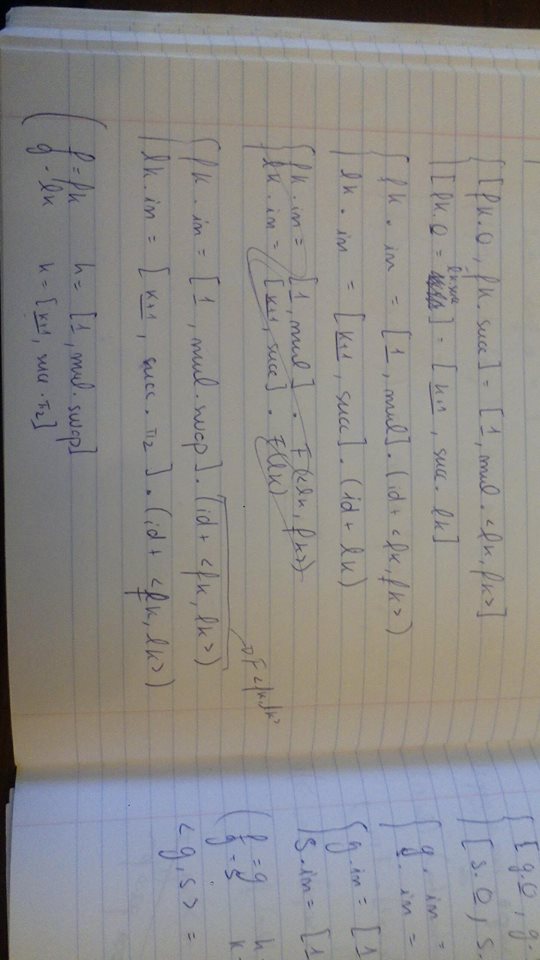 [fk.0, fk.succ] = [1, mul.<lk, fk>]
lk.succ
[lk.0 = ] = [k+1, succ.lk]
fk.in = [1, mul].(id + <lk, fk>)
lk.in = [k+1, succ].(id + lk)
fk.in = [1, mul]. F(<lk, fk>)
lk.in = [k+1, succ]. F(lk)
F<fk, lk>
fk.in = [1, mul.swap].(id + <fk, lk>)
lk.in = [k+1, succ.π2].(id + <fk, lk>)
f = fk h = [1, mul.swap]
g = lk k = [k+1, succ.π2]
[g.0, g.
[s.0, s.
g.in =
s.in =
g.in = [1
s.in = [1
f = g h
g = s k
<g, s> =